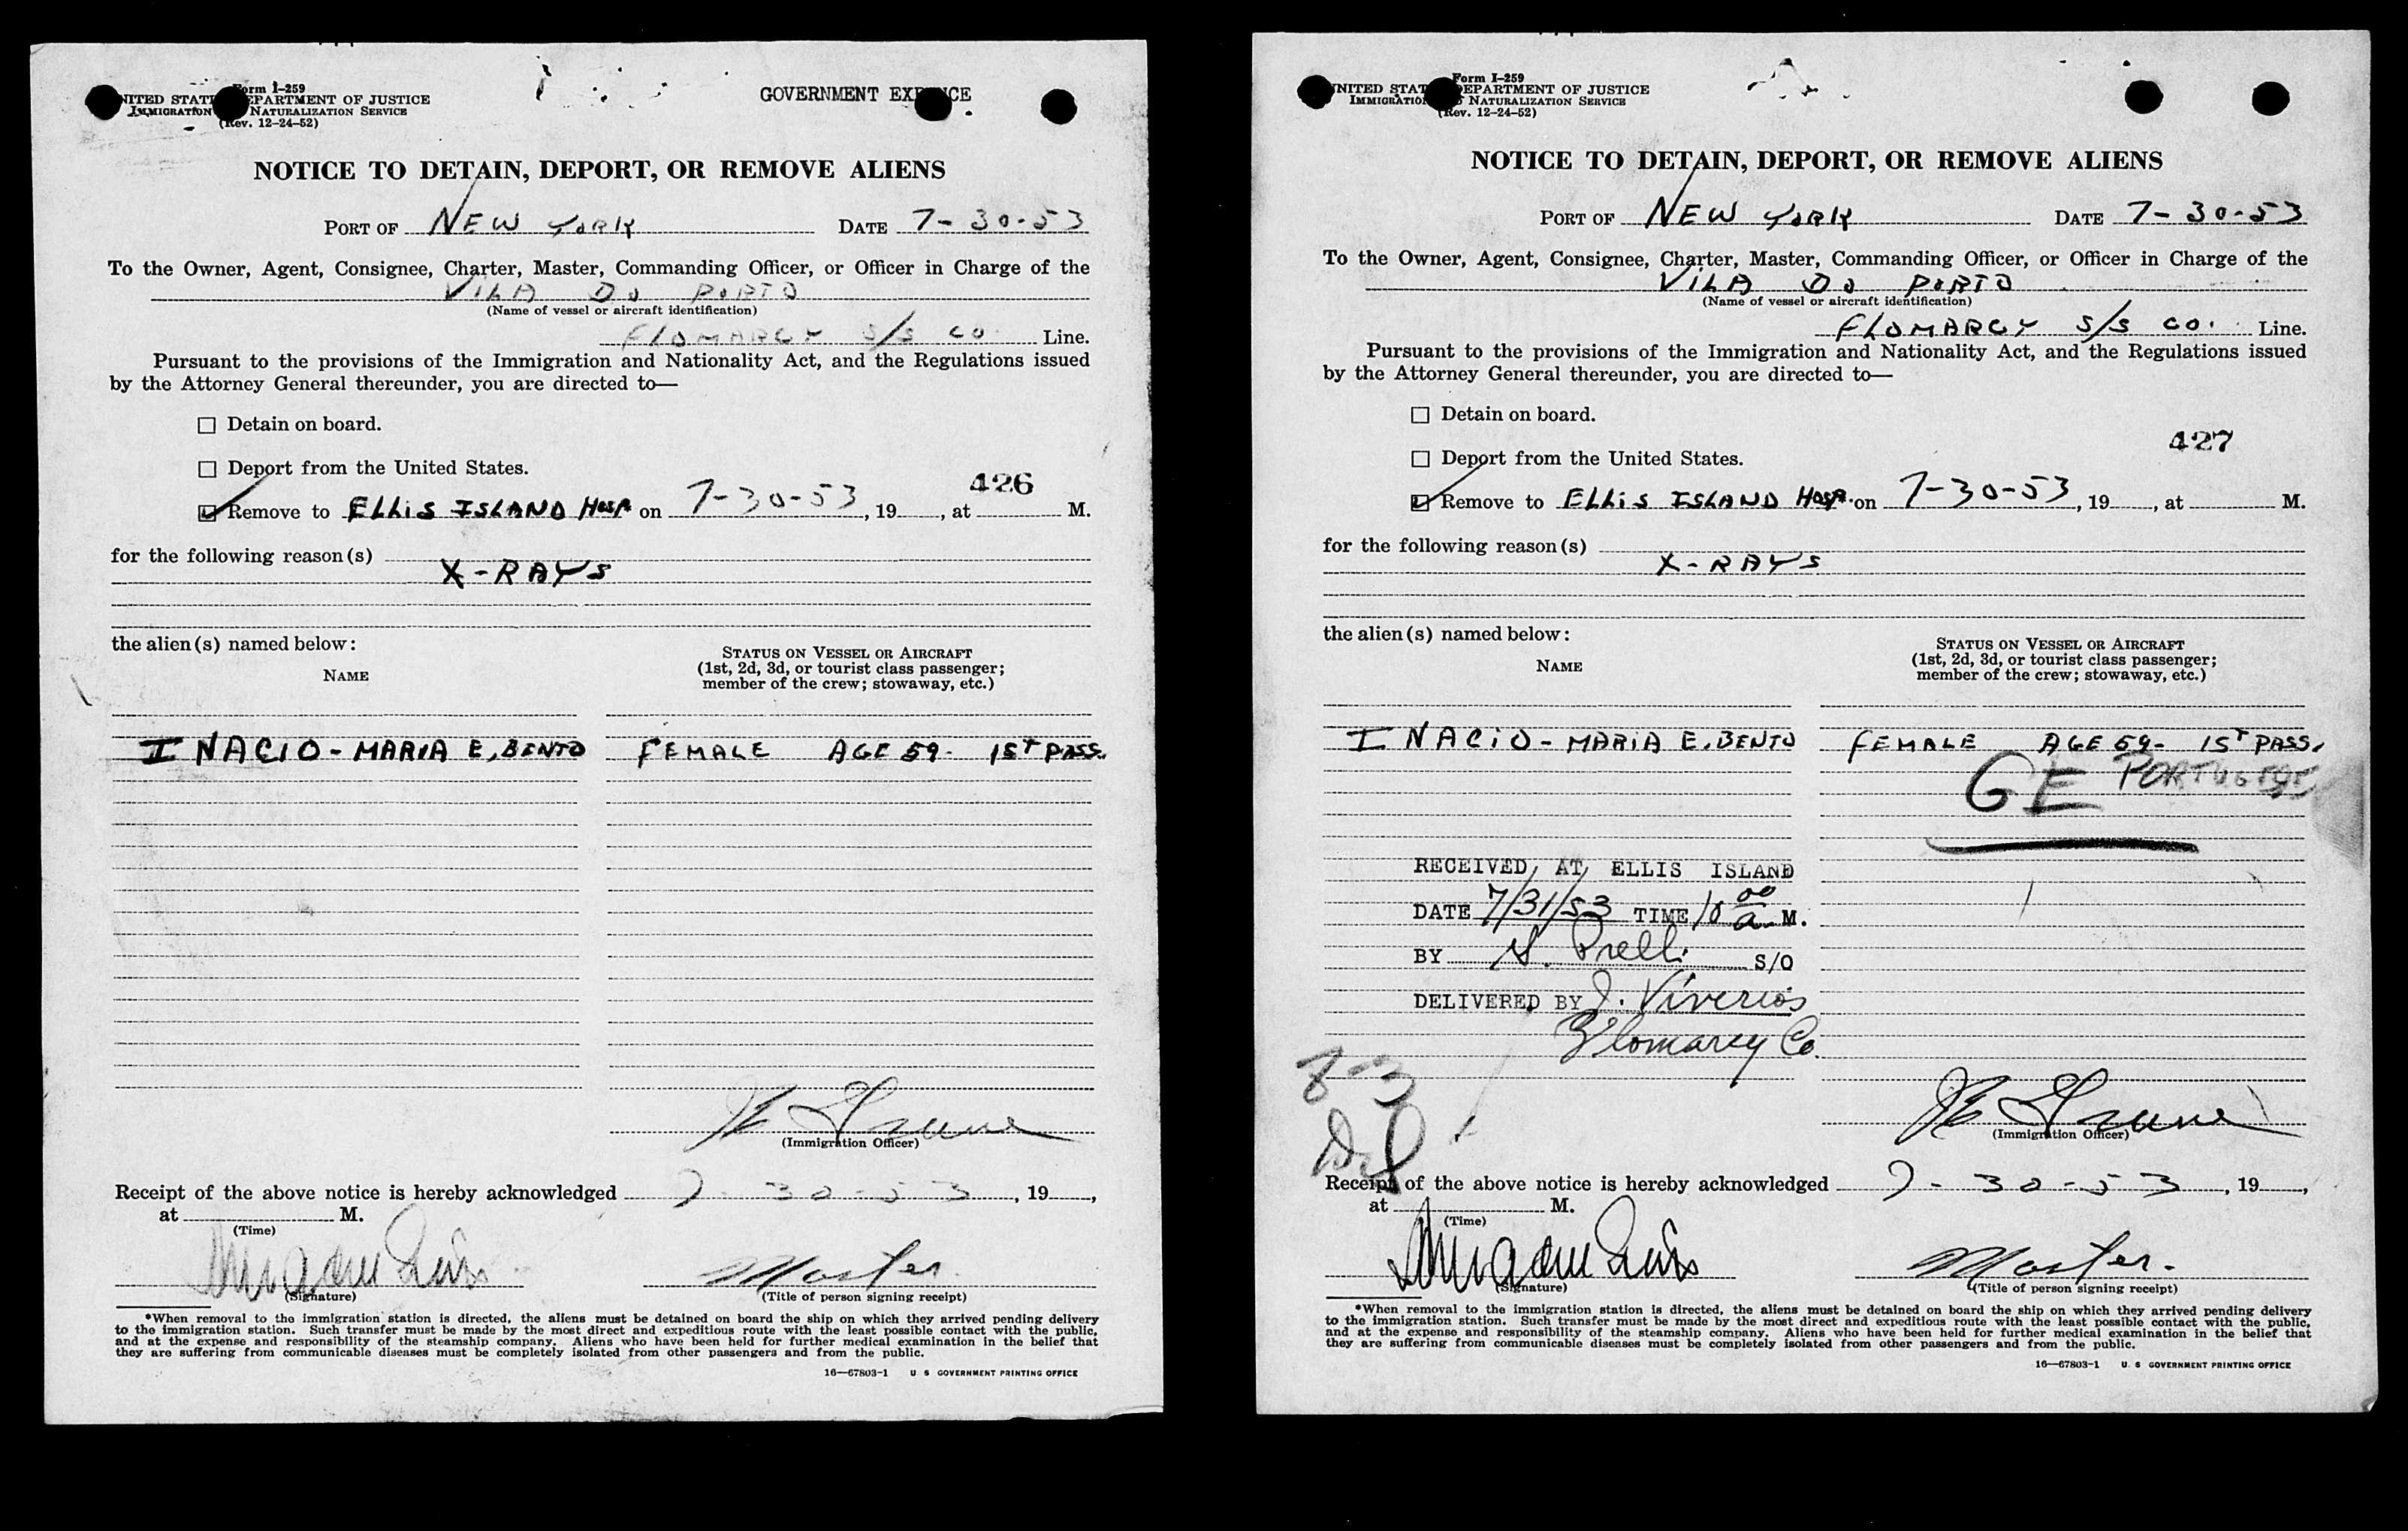 Form I-259
UNITED STATES DEPARTMENT OF JUSTICE
IMMIGRATION AND NATURALIZATION SERVICE
(Rev. 12-24-52)
GOVERNMENT EXPENCE
NOTICE TO DETAIN, DEPORT, OR REMOVE ALIENS
PORT OF NEW YORK DATE 7-30-53
To the Owner, Agent, Consignee, Charter, Master, Commanding Officer, or Officer in Charge of the
VILA DO PORTO
(Name of vessel or aircraft identification)
FLOMARCY S/S CO. Line.
Pursuant to the provisions of the Immigration and Nationality Act, and the Regulations issued
by the Attorney General thereunder, you are directed to—
Detain on board.
Deport from the United States.
426
Remove to ELLIS ISLAND HOSP. on 7-30-53, 19, at M.
for the following reason(s)
X-RAYS
the alien(s) named below:
NAME
STATUS ON VESSEL OR AIRCRAFT
(1st, 2d, 3d, or tourist class passenger;
member of the crew; stowaway, etc.)
INACIO - MARIA E. BENTO FEMALE AGE 59- 1ST PASS.
(Immigration Officer)
Receipt of the above notice is hereby acknowledged 7-30-53, 19,
at M.
(Time)
Master
(Signature) (Title of person signing receipt)
*When removal to the immigration station is directed, the aliens must be detained on board the ship on which they arrived pending delivery
to the immigration station. Such transfer must be made by the most direct and expeditious route with the least possible contact with the public,
and at the expense and responsibility of the steamship company. Aliens who have been held for further medical examination in the belief that
they are suffering from communicable diseases must be completely isolated from other passengers and from the public.
16—67803-1 U S GOVERNMENT PRINTING OFFICE
Form I-259
UNITED STATES DEPARTMENT OF JUSTICE
IMMIGRATION AND NATURALIZATION SERVICE
(Rev. 12-24-52)
NOTICE TO DETAIN, DEPORT, OR REMOVE ALIENS
PORT OF NEW YORK DATE 7-30-53
To the Owner, Agent, Consignee, Charter, Master, Commanding Officer, or Officer in Charge of the
VILA DO PORTO
(Name of vessel or aircraft identification)
FLOMARCY S/S CO. Line.
Pursuant to the provisions of the Immigration and Nationality Act, and the Regulations issued
by the Attorney General thereunder, you are directed to—
Detain on board.
427
Deport from the United States.
Remove to ELLIS ISLAND HOSP. on 7-30-53, 19, at M.
for the following reason(s)
X-RAYS
the alien(s) named below:
NAME
STATUS ON VESSEL OR AIRCRAFT
(1st, 2d, 3d, or tourist class passenger;
member of the crew; stowaway, etc.)
INACIO - MARIA E. BENTO FEMALE AGE 59- 1ST PASS.
GE PORTUGESE
RECEIVED AT ELLIS ISLAND
DATE 7/31/53 TIME 10 00 a M.
BY S. Prelli S/O
DELIVERED BY J. Viverios
Flomarcy Co.
8-3
(Immigration Officer)
Receipt of the above notice is hereby acknowledged 7-30-53, 19,
at M.
(Time)
Master.
(Signature) (Title of person signing receipt)
*When removal to the immigration station is directed, the aliens must be detained on board the ship on which they arrived pending delivery
to the immigration station. Such transfer must be made by the most direct and expeditious route with the least possible contact with the public,
and at the expense and responsibility of the steamship company. Aliens who have been held for further medical examination in the belief that
they are suffering from communicable diseases must be completely isolated from other passengers and from the public.
16—67803-1 U S GOVERNMENT PRINTING OFFICE